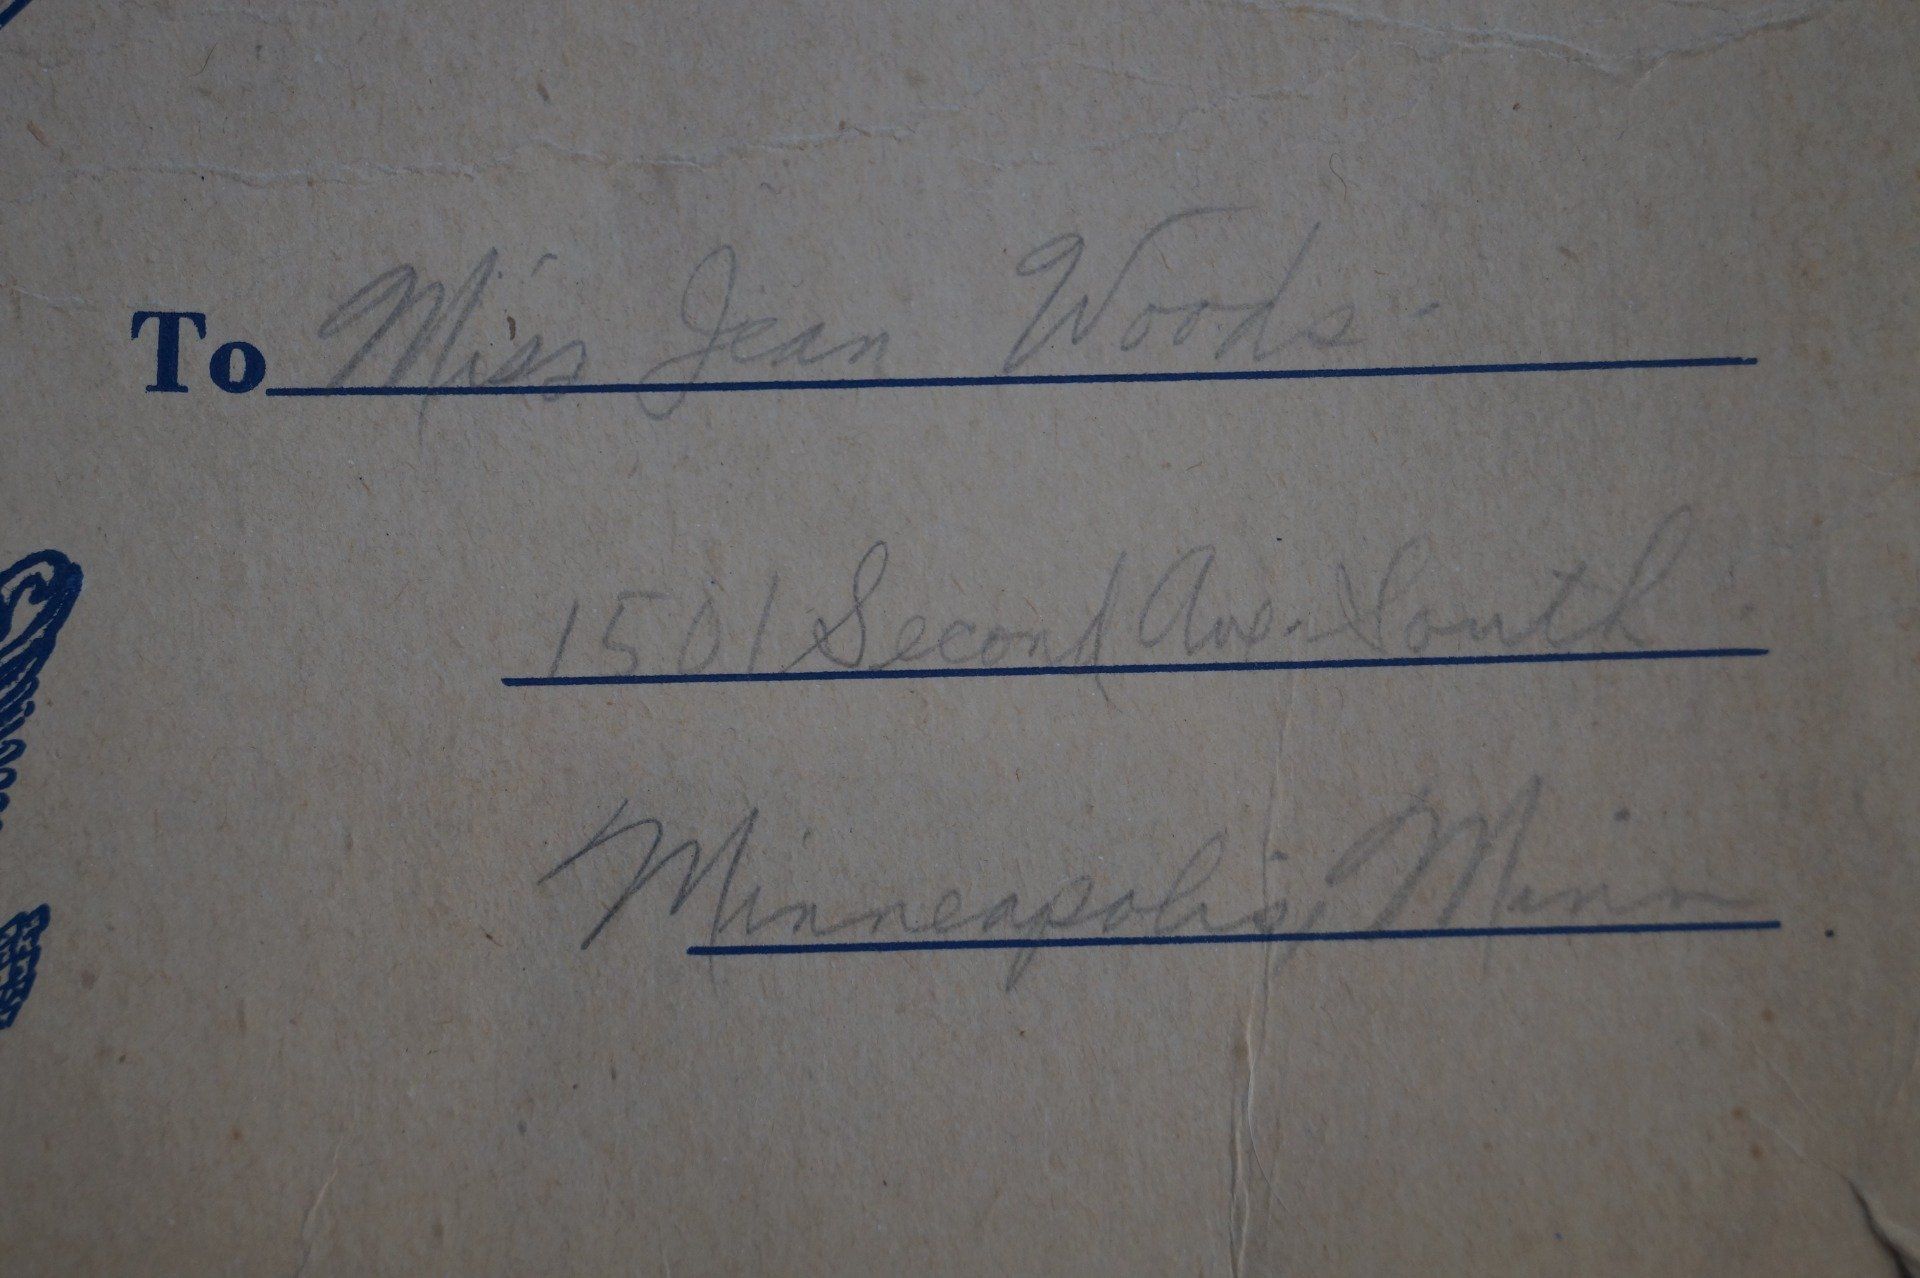 To Miss Jean Woods.
1501 Second Ave. South.
Minneapolis, Minn.